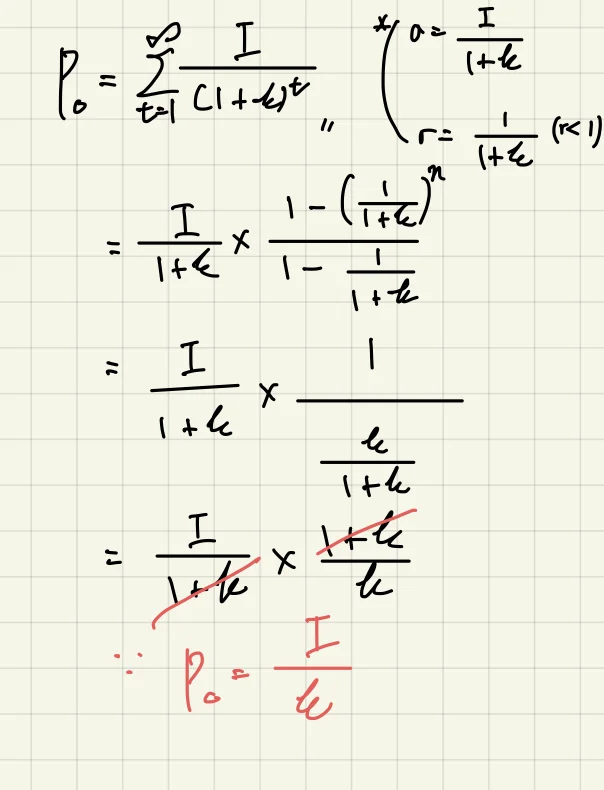 P₀ = ∑_{t=1}^{∞} I/(1+k)^t 〃 * a = I/(1+k)
r = 1/(1+k) (r<1)
= I/(1+k) × (1 - (1/(1+k))^n)/(1 - 1/(1+k))
= I/(1+k) × 1/(k/(1+k))
= I/(1+k) × (1+k)/k
∵ P₀ = I/k